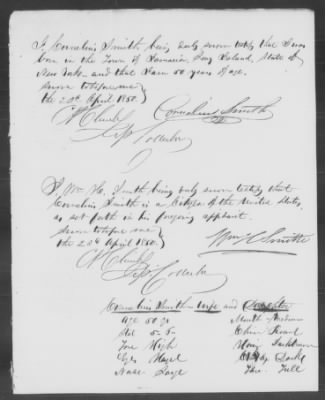 I Cornelius Smith being duly sworn testify that I was
born in the Town of Jamaica, Long Island, State of
New York and that I am 50 years of age.
Sworn to before me
the 20th April 1850.
Cornelius Smith
Collector
I Wm H. Smith being duly sworn testify that
Cornelius Smith is a Citizen of the United States,
as set forth in his forgoing
Sworn to before me
the 20th April 1850.
Wm H Smith
Collector
Cornelius Smith wife and
Age 50 yrs
Mouth
5.5.
Chin
Fore High
Hair
Eyes Hazel
Dark
Nose Large
Face Full